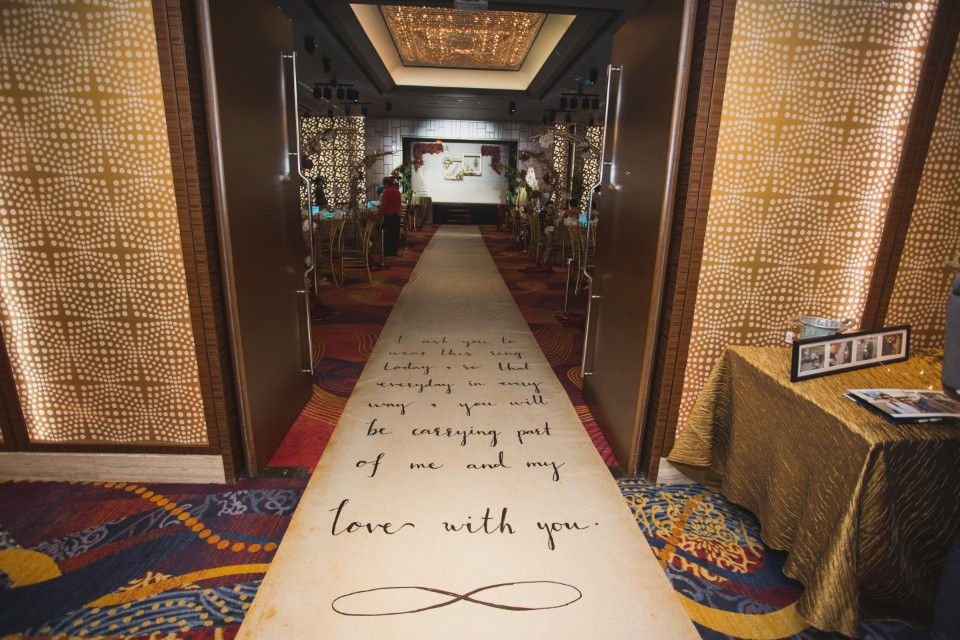 I ask you to
wear this ring
today , so that
everyday in every
way , you will
be carrying part
of me and my
love with you.